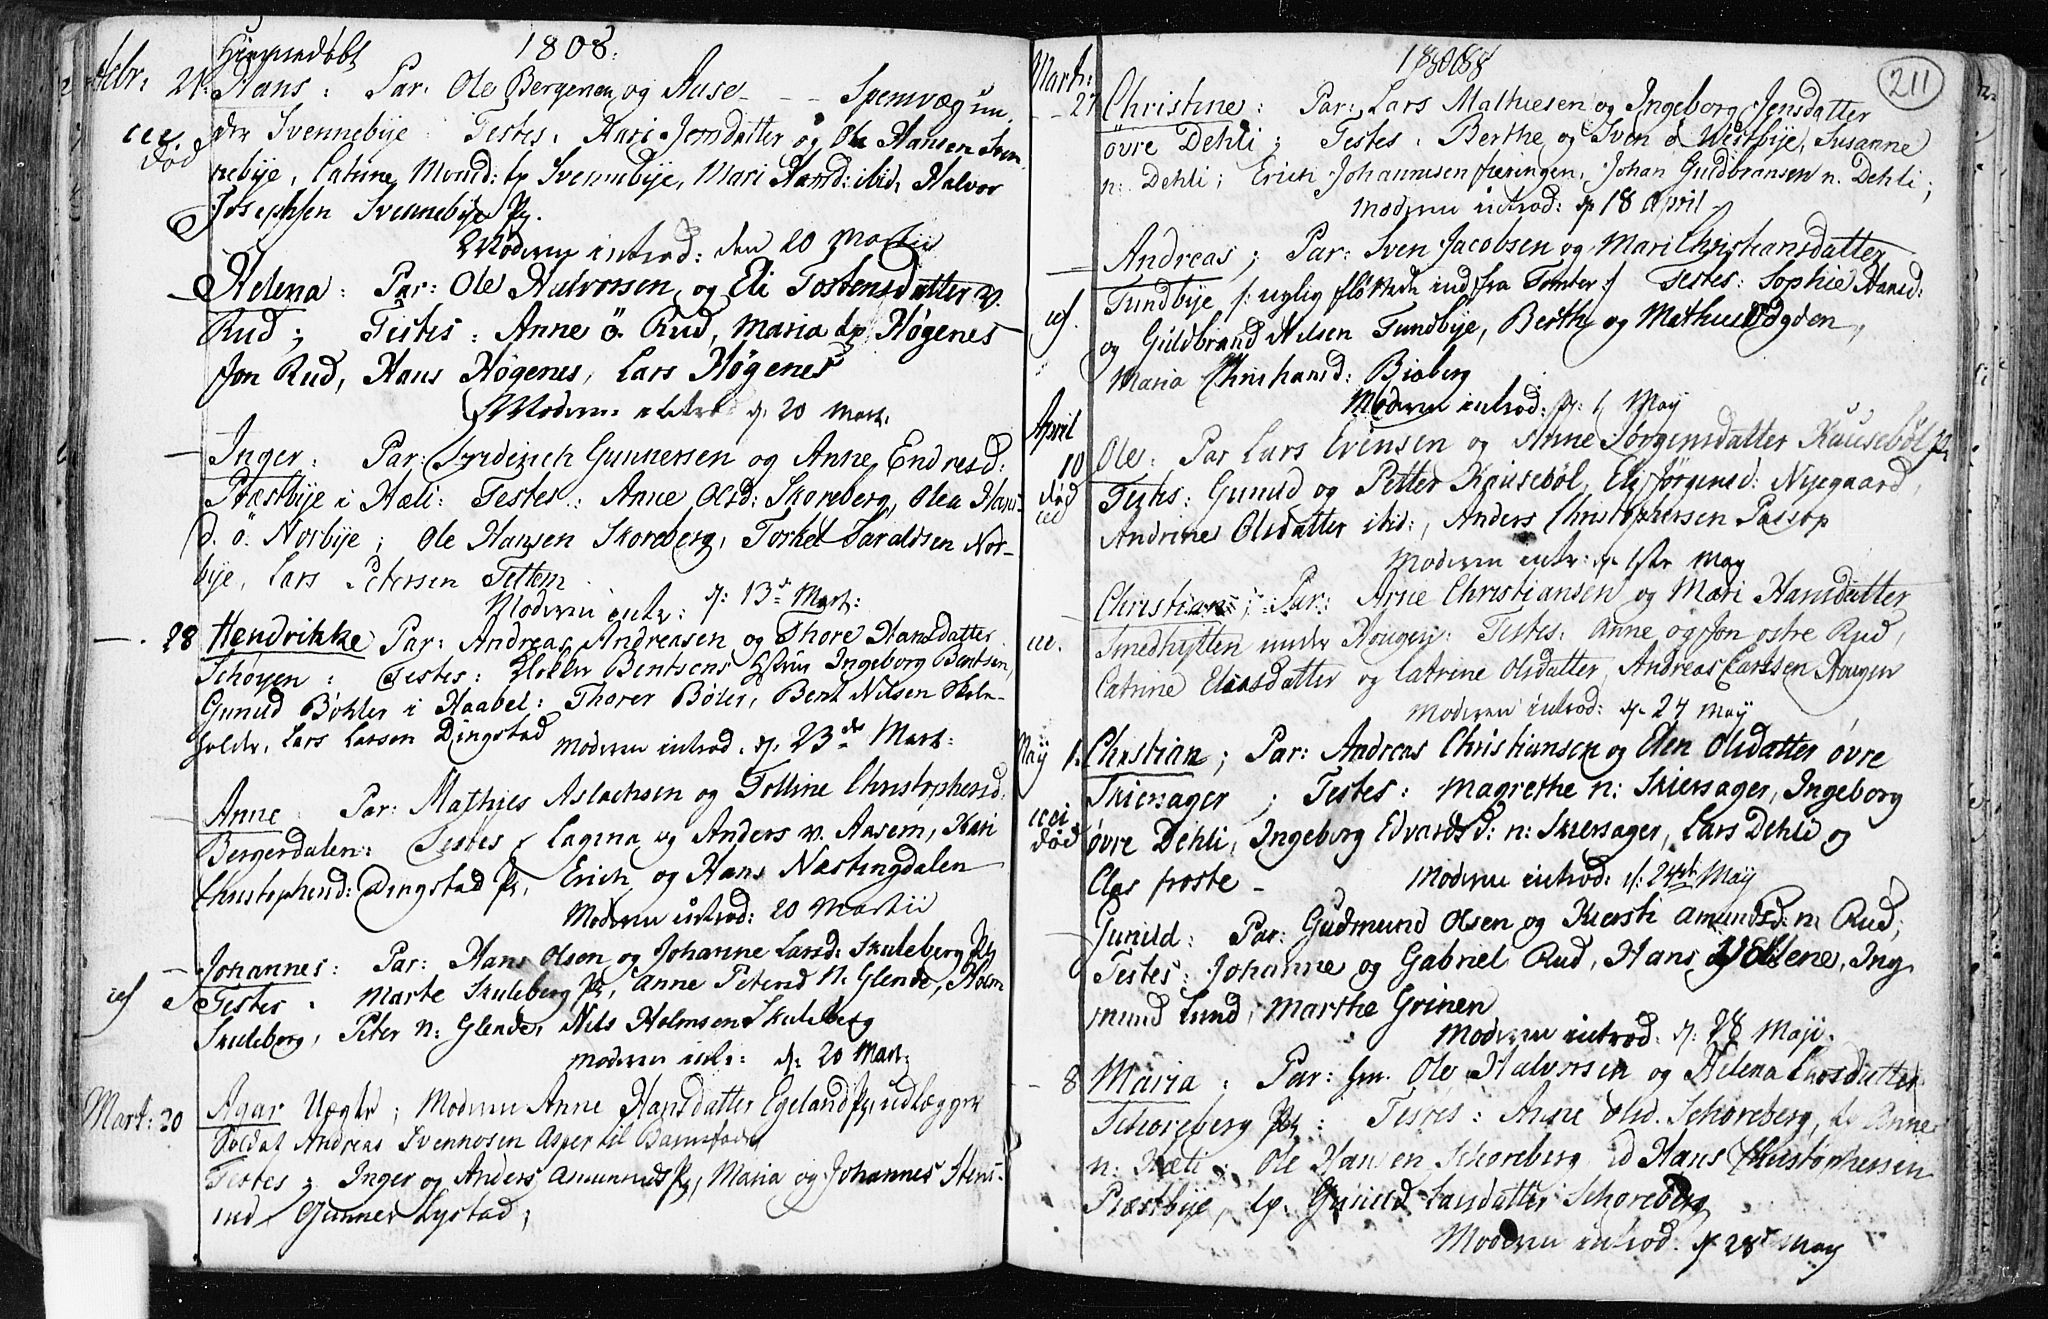 1808.
Hiemmedøbt
Febr: 21. Hans: Par: Ole Bergersen og Aase - - - Spernvæg un,
der Svennebye Testes, Kari Jonsdatter og Ole Hansen Sven
død
nebye, Catrine Mons d: lp Svennebye, Mari Hansd: ibid, Halvor
Josephsen Svennebye Pg.
Moderen introd: den 20 Martii
Helena: Par: Ole Halvorsen og Eli Tostensdatter v.
Rud; Testes: Anne ö. Rud, Maria lp Høgenes
Jon Rud, Hans Høgenes, Lars Høgenes
Moderen introd d. 20 Mart.
Inger: Par: Friderich Gunnersen og Anne Endresd:
Præstbye i Hæli: Testes: Anne Olsd: Skoreberg, Olea Hans
d. ö. Norbye; Ole Hansen Skoreberg, Torkel Taraldsen Nor-
bye, Lars Petersen Tettem
Moderen intr: d: 13de Mart:
28 Hendrikke Par: Andreas Andreasen og Thore Hansdatter
Schøyen: Testes: Klokker Bentsens Ingeborg Bentsen,
Gunild Böhler i Haabel: Thorer Böler, Bent Nilsen Skin
folder, Lars Larsen Dingstad Moderen introd. d. 23de Mart:
Anne: Par: Mathies Aslachsen og Tolline Christophersd:
Bergerdalen: Testes, Lagina og Anders v. Aasem, Kari
Christophersd: Dingstad Pg, Erich og Hans Næstingdalen
Moderen introd: 20 Martii
Johannes: Par: Hans Olsen og Johanne Larsd: Skuleberg Pg
Testes: Marte Skuleberg Pg, Anne Petersd N: Glende, Holm
Skuleberg, Peter n: Glende, Nils Holmsen Skuleberg
Moderen intr: d: 20 Mart:
Mart: 20 Agar Uægte; Moderen Anne Hansdatter Egeland Pg, udlægger
Soldat Andreas Svennosen Asper til Barnefader
Testes; Inger og Anders Asmunnes Pg, Maria og Johannes Stens
rud, Gunner Lystad;
1808
211
Mart:
27 Christine: Par: Lars Mathiesen og Ingeborg Jensdatter
övre Dehli; Testes: Berthe og Sven ö Westbye, Susanne
n: Dehli; Erich Johannesen, Johan Guldbransen n. Dehli;
Moderen introd: d. 18 April
Andreas; Par: Sven Jacobsen og Mari Christiansdatter
Tundbye /: nylig flöttede ind fra Tomter :/ Testes: Sophie Hansd:
og Guldbrand Nilsen Tundbye, Berthe og Mathies Ögden,
Maria Christiansd: Bioberg
Moderen introd: d: 1 May
April
10 Ole: Par Lars Evensen og Anne Jørgensdatter Kausebøl Pg
død Testes: Gunild og Petter Kausebøl, Eli Jørgensd: Nyegaard,
Andrine Olsdatter ibid:, Anders Christophersen Passop
Moderen intr: d. 1ste May
Christian; Par: Arne Christiansen og Mari Hansdatter
Smedhytten under Hougen: Testes: Anne og Jon ostre Rud,
Catrine Eliasdatter og Catrine Olsdatter, Andreas Larssen Hougen
Moderen introd: d. 24 May
May 1. Christian; Par: Andreas Christiansen og Elen Olsdatter övre
Skiersager; Testes: Magrethe n: Skiersager, Ingeborg
død övre Dehli, Ingeborg Edvardsd: n: Skiersager, Lars Dehli og
Clas froste - Moderen introd: d: 24de May
Gunild: Par: Gudmund Olsen og Kiersti Amundsd: n: Rud;
Testes: Johanne og Gabriel Rud, Hans Vollene, Ing
mund Lund, Marthe Grinen
Moderen introd: d: 28 Maji.
8 Maria: Par: hr. Ole Halvorsen og Helena Larsdatter
Schoreberg Pg: Testes: Anne Olsd. Schoreberg, lp Anne
n: Hæli: Ole Hansen Schoreberg, Hans Christophersen
Præstbye, lp. Gunild Larsdatter Schoreberg
Moderen introd. d 28de May